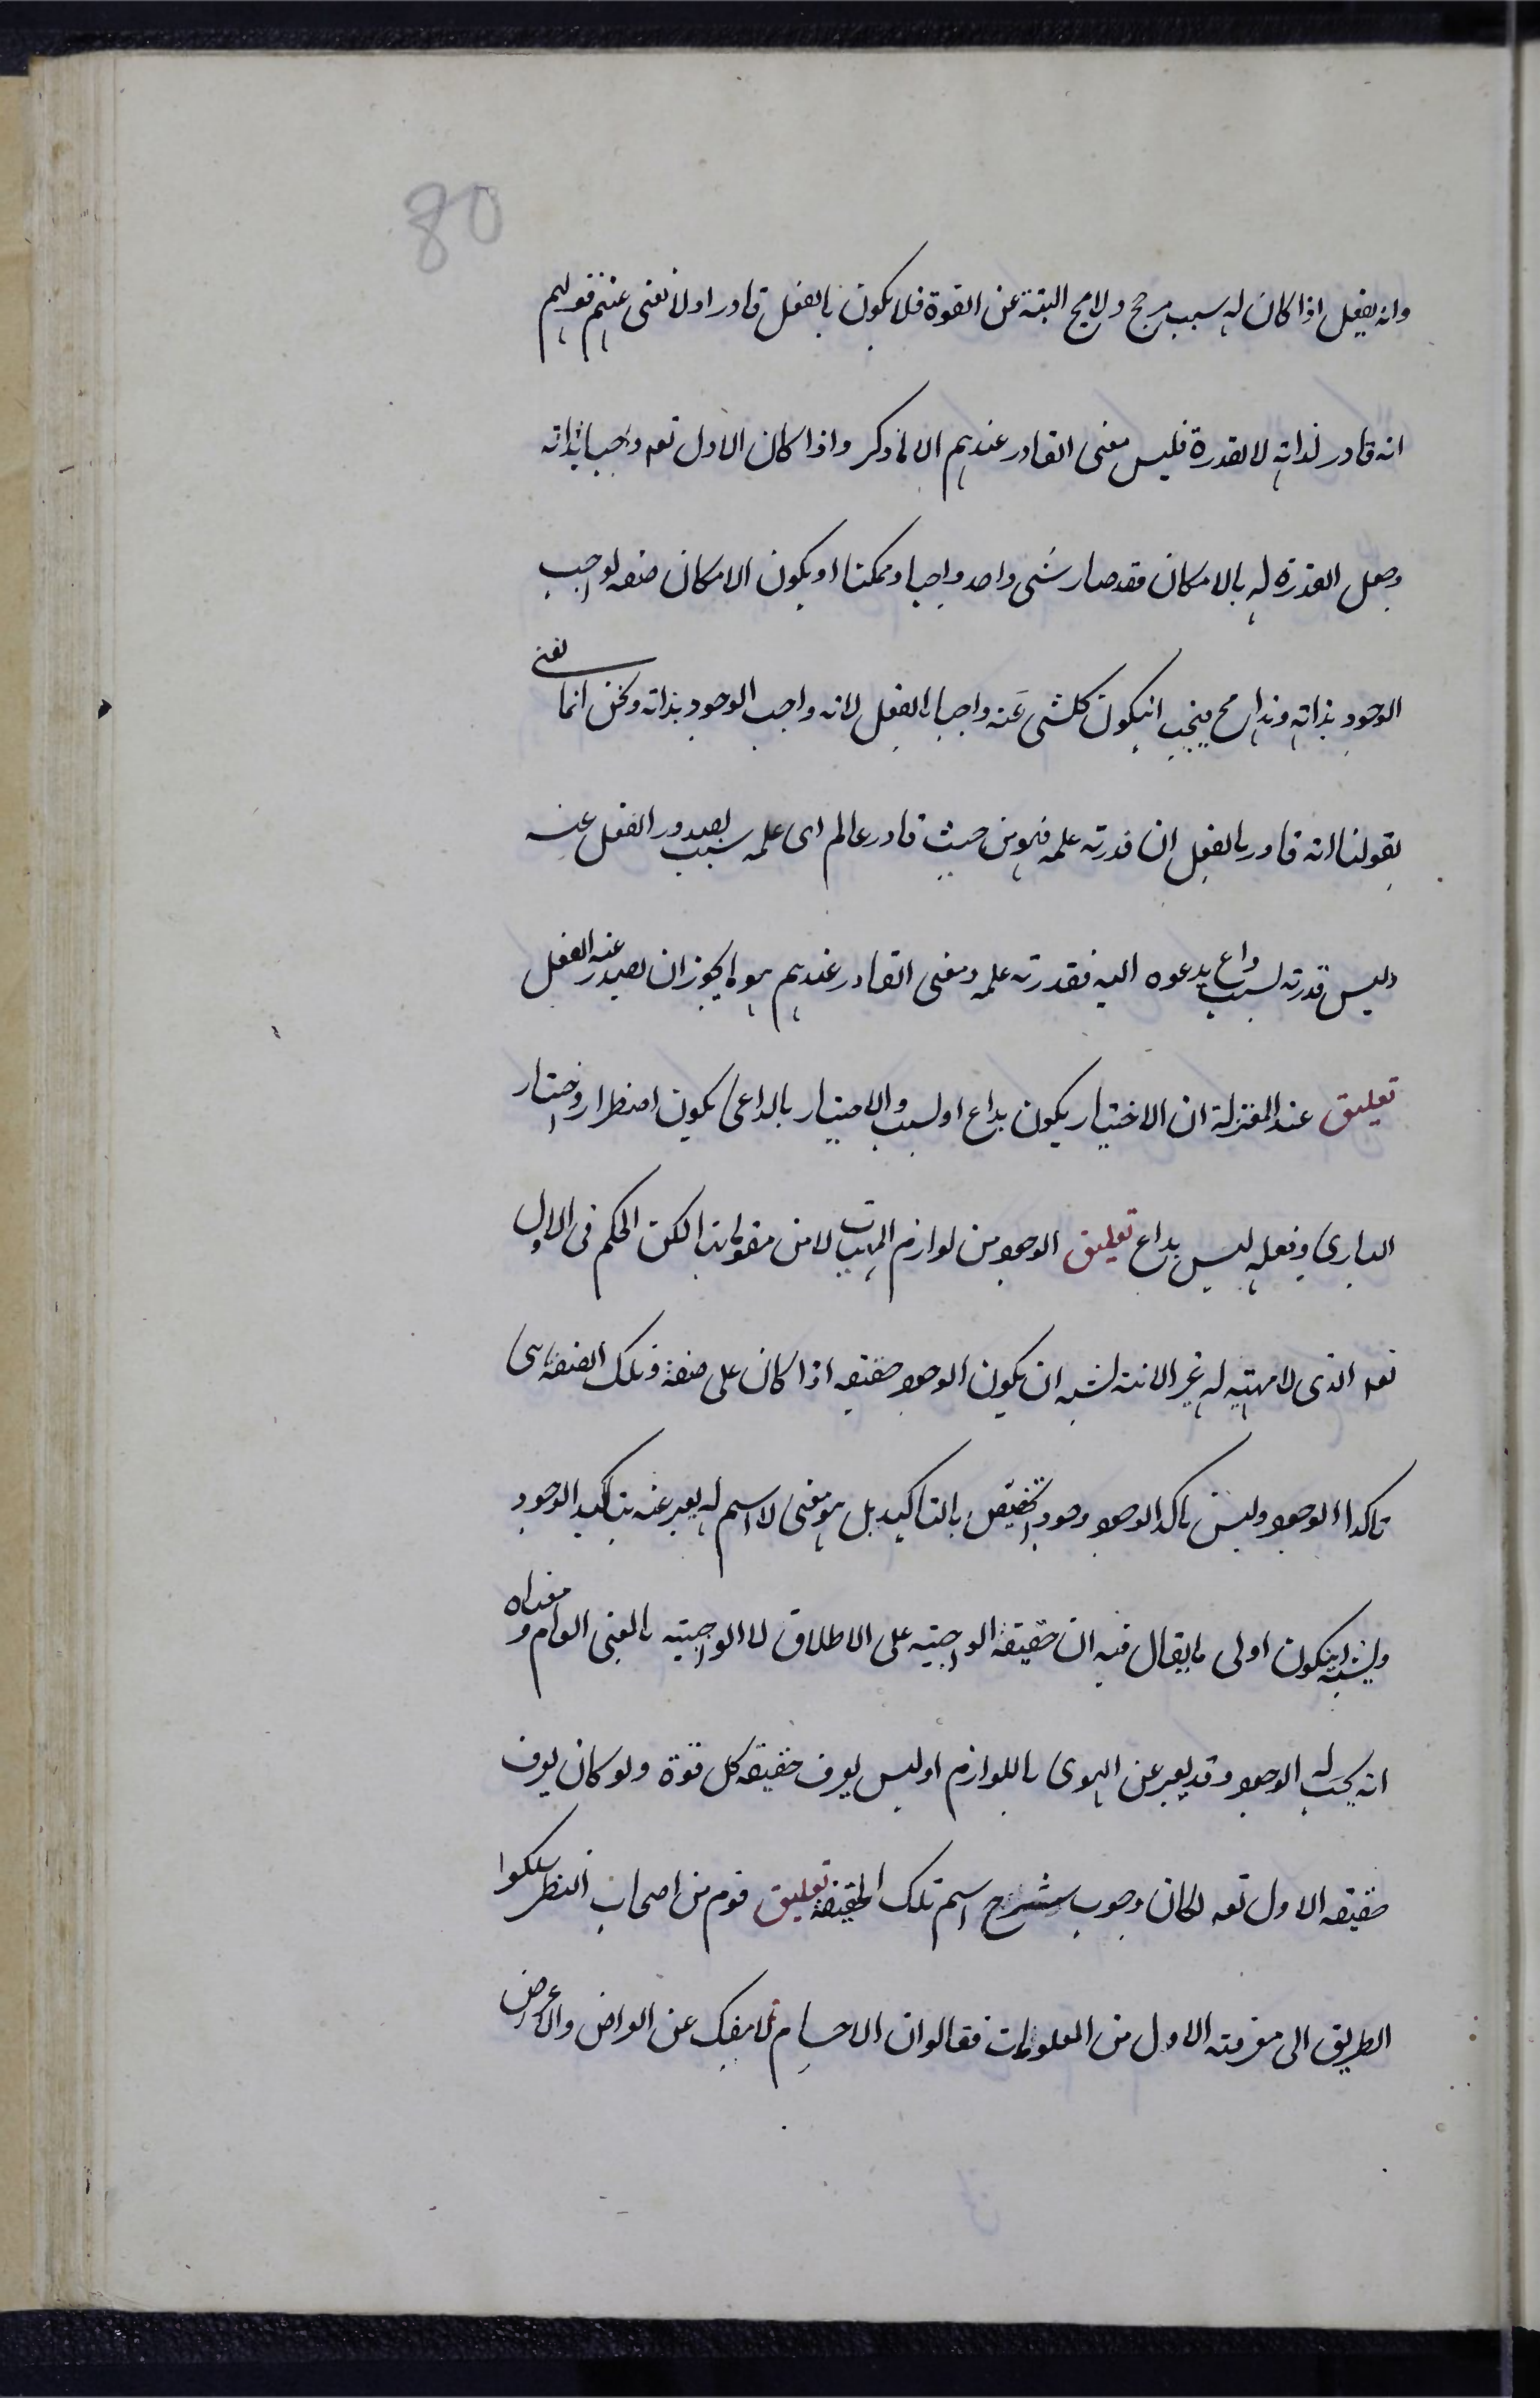 80
وانه يفعل اذا كان له سبب مرجح ولامح البتة عن القوة فلا يكون بالفعل قادرا ولا نعنى عنهم قولهم
انه قادر لذاته لا لقدرة فليس معنى القادر عندهم الا ما ذكر واذا كان الاول تعه واجبا بذاته
وجعل القدرة له بالامكان فقد صار شى واحد واجبا وممكنا او يكون الامكان صفه لواجب
الوجود بذاته وهذا مح فيجب انيكون كلشى عنه واجبا بالفعل لانه واجب الوجود بذاته ونحن انما نعنى
بقولنا انه قادر بالفعل ان قدرته علمه فهو من حيث قادر عالم اى علمه سبب لصدور الفعل عنه
وليس قدرته لسبب داع يدعوه اليه فقدرته علمه ومعنى القادر عندهم هو ما يجوز ان يصدر عنه الفعل
تعليق عند المعتزلة ان الاختيار يكون بداع او لسبب والاختيار بالداعى يكون اضطرارا واختيار
البارى وفعله ليس بداع تعليق الوجود من لوازم المهيات لا من مقوماتها لكن الحكم فى الاول
تعه الذى لا مهية له غير الانية يشبه ان يكون الوجود حقيقه اذا كان على صفة وتلك الصفة هى
تاكد الوجود وليس تاكد الوجود وجودا يتخصص بالتاكيد بل هو معنى لا اسم له يعبر عنه بتاكد الوجود
ويشبه انيكون اولى ما يقال فيه ان حقيقة الواجبيه على الاطلاق لا الواجبيه بالمعنى العام ومعناه
انه يجب له الوجود وقد يعبر عن القوى باللوازم اوليس يعرف حقيقه كل قوة ولو كان يعرف
حقيقه الاول تعه لكان وجوب شرح اسم تلك الحقيقة تعليق قوم من اصحاب النظر سلكوا
الطريق الى معرفته الاول من المعلومات فقالوا ان الاجسام لا ينفك عن العراض والاعراض